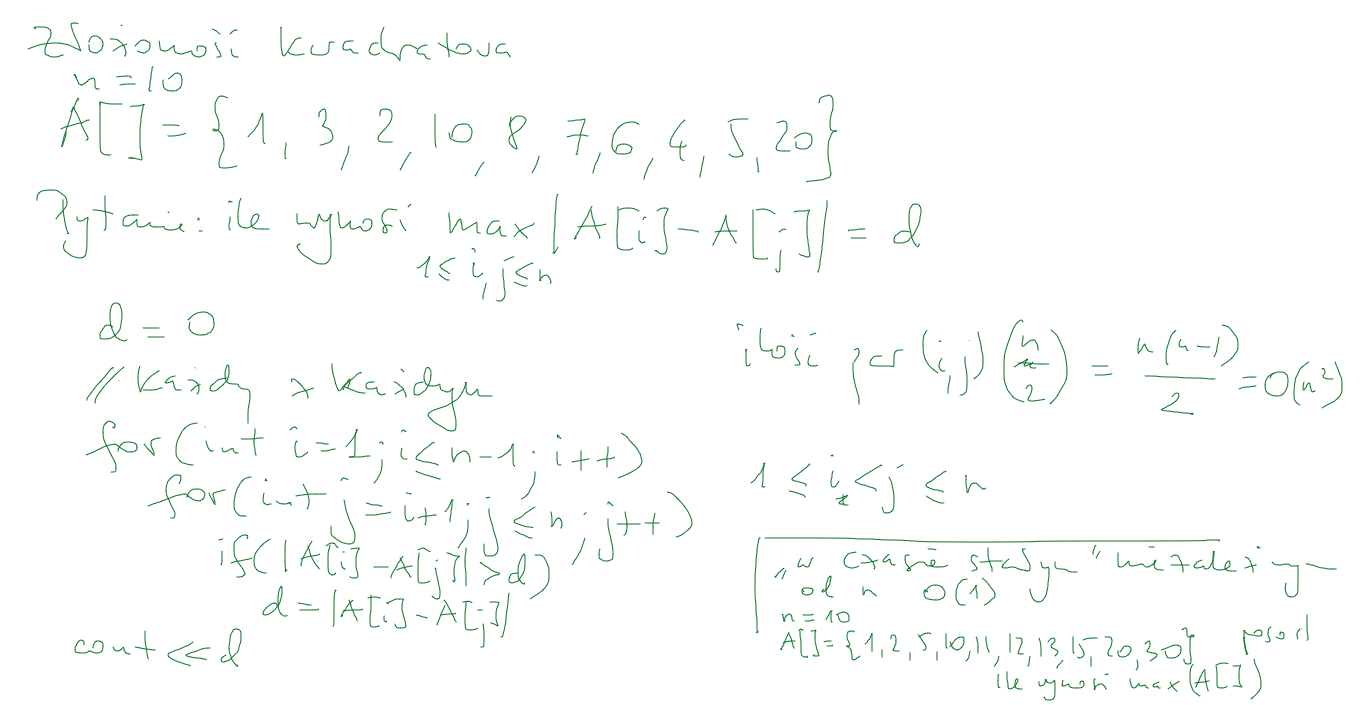 Złożoność kwadratowa
n = 10
A[] = {1, 3, 2, 10, 8, 7, 6, 4, 5, 20}
Pytanie: ile wynosi max |A[i] - A[j]| = d
1 ≤ i, j ≤ n
d = 0
// każdy z każdym
for (int i = 1; i ≤ n-1; i++)
for (int j = i+1; j ≤ n; j++)
if (|A[i] - A[j]| > d)
d = |A[i] - A[j]|
cout << d
ilość par (i,j) (n 2) = n(n-1)/2 = O(n²)
1 ≤ i < j ≤ n
„w czasie stałym" niezależnym
od n O(1)
n = 10
A[] = {1, 2, 5, 10, 11, 12, 13, 15, 20, 30}
ile wynosi max(A[])